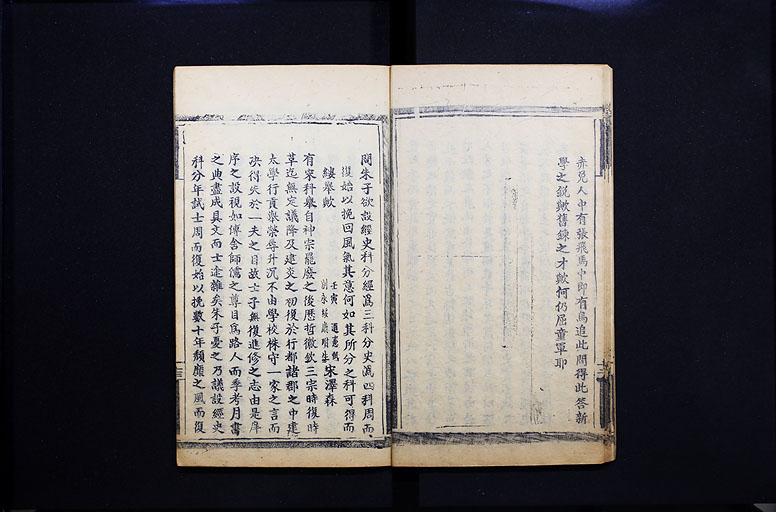 赤兔人中有張飛馬中即有烏追此問得此答新
學之銳歟舊鍊之才歟何仍屈童軍耶
問朱子欲設經史科分經為三科分史為四科周而
復始以挽回風氣其意何如其所分之科可得而
縷舉歟
宋澤森
有宋科舉自神宗罷廢之後歷哲徽欽三宗時復時
革迄無定議降及建炎之初復於行都諸郡之中建
太學行貢舉榮辱升沉不由學校株守一家之言而
決得失於一夫之目故士子無復進修之志由是庠
序之設視如傳舍師儒之尊目為路人而季考月書
之典盡成具文而士途雜矣朱子憂之乃議設經史
科分年試士周而復始以挽數十年頹靡之風而復